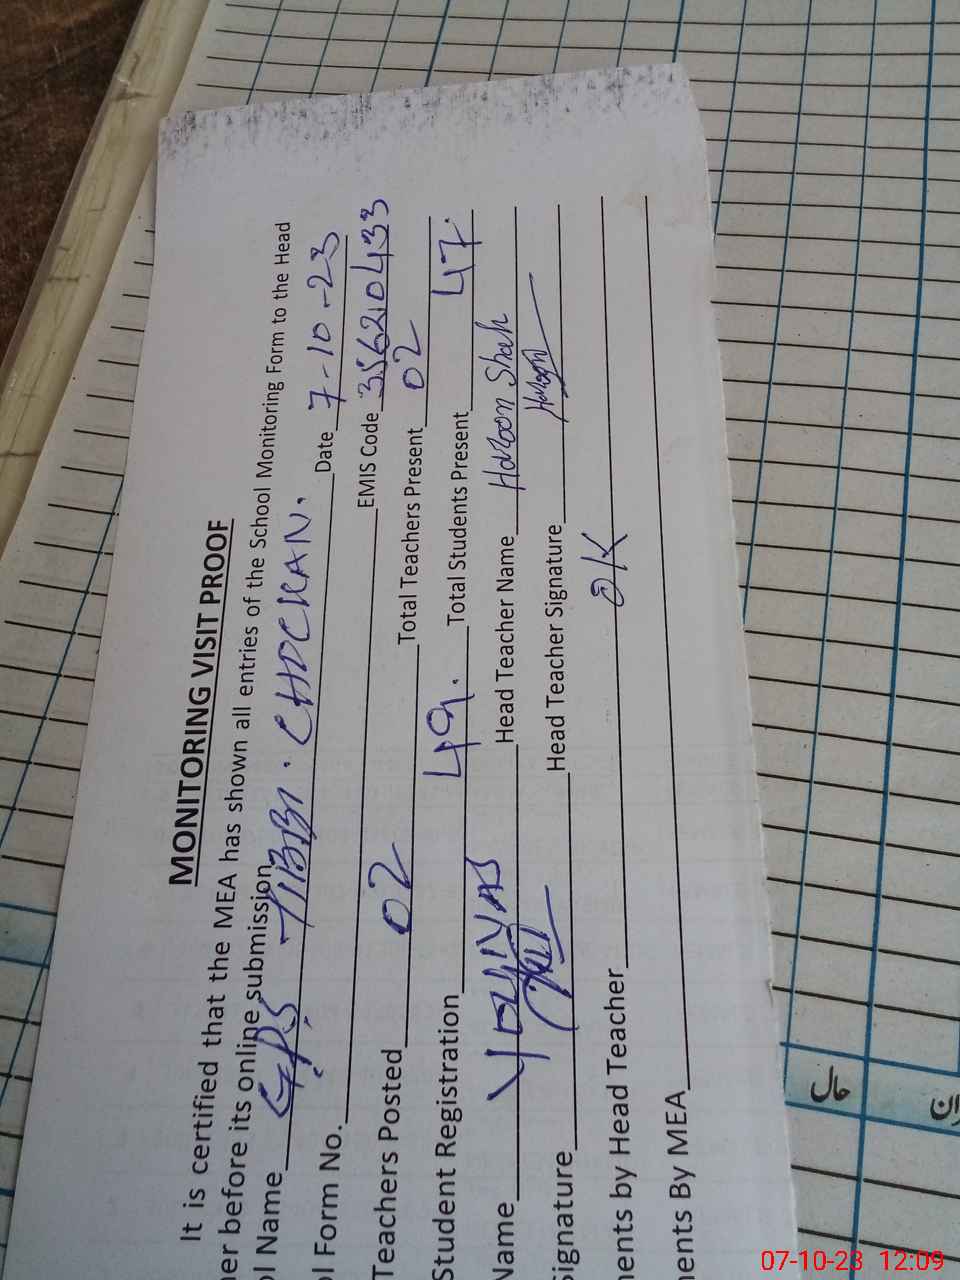 MONITORING VISIT PROOF
It is certified that the MEA has shown all entries of the School Monitoring Form to the Head
her before its online submission
ol Name GPS TIBBI. CHOCHAN. Date 7-10-23
ol Form No. EMIS Code 35620433
Teachers Posted 02 Total Teachers Present 02
Student Registration 49. Total Students Present 47.
Name Head Teacher Name Haroon Shah
Signature Head Teacher Signature
ments by Head Teacher OK
ments By MEA
حال
07-10-23 12:09